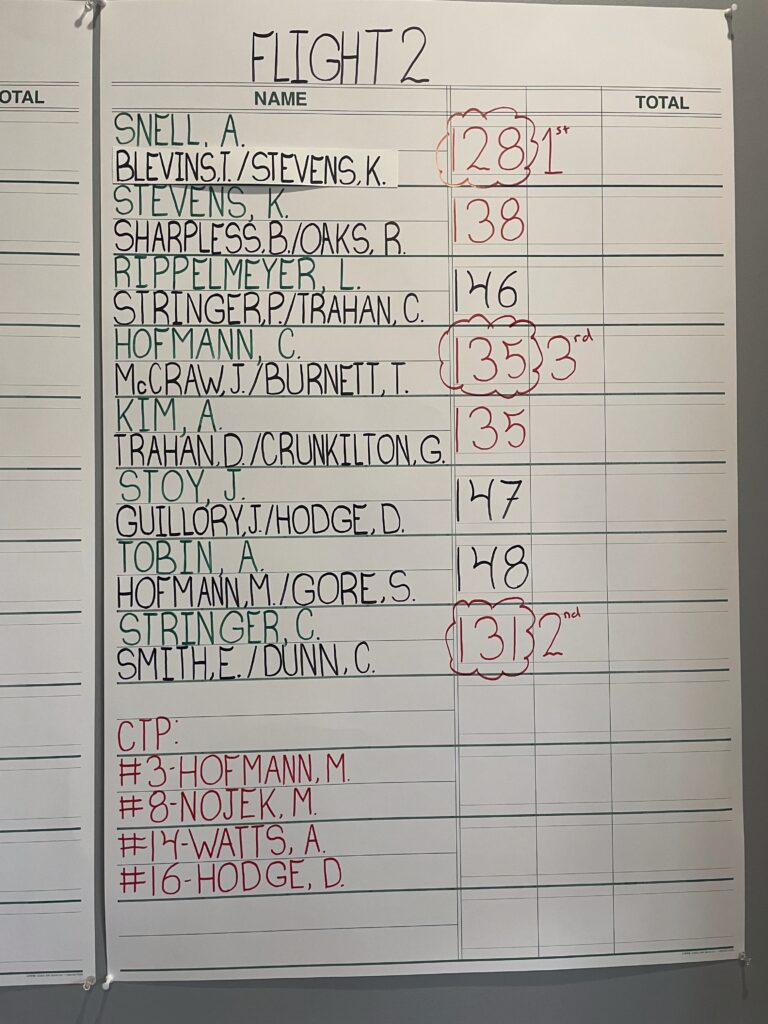 FLIGHT 2
OTAL
NAME TOTAL
SNELL, A.
BLEVINS,T./STEVENS, K. 128 1st
STEVENS, K.
SHARPLESS, B./OAKS, R. 138
RIPPELMEYER, L.
STRINGER, P./TRAHAN, C. 146
HOFMANN, C.
McCRAW, J./BURNETT, T. 135 3rd
KIM, A.
TRAHAN, D./CRUNKILTON, G. 135
STOY, J.
GUILLORY, J./HODGE, D. 147
TOBIN, A.
HOFMANN, M./GORE, S. 148
STRINGER, C.
SMITH, E./DUNN, C. 131 2nd
CTP:
#3-HOFMANN, M.
#8-NOJEK, M.
#14-WATTS, A.
#16-HODGE, D.